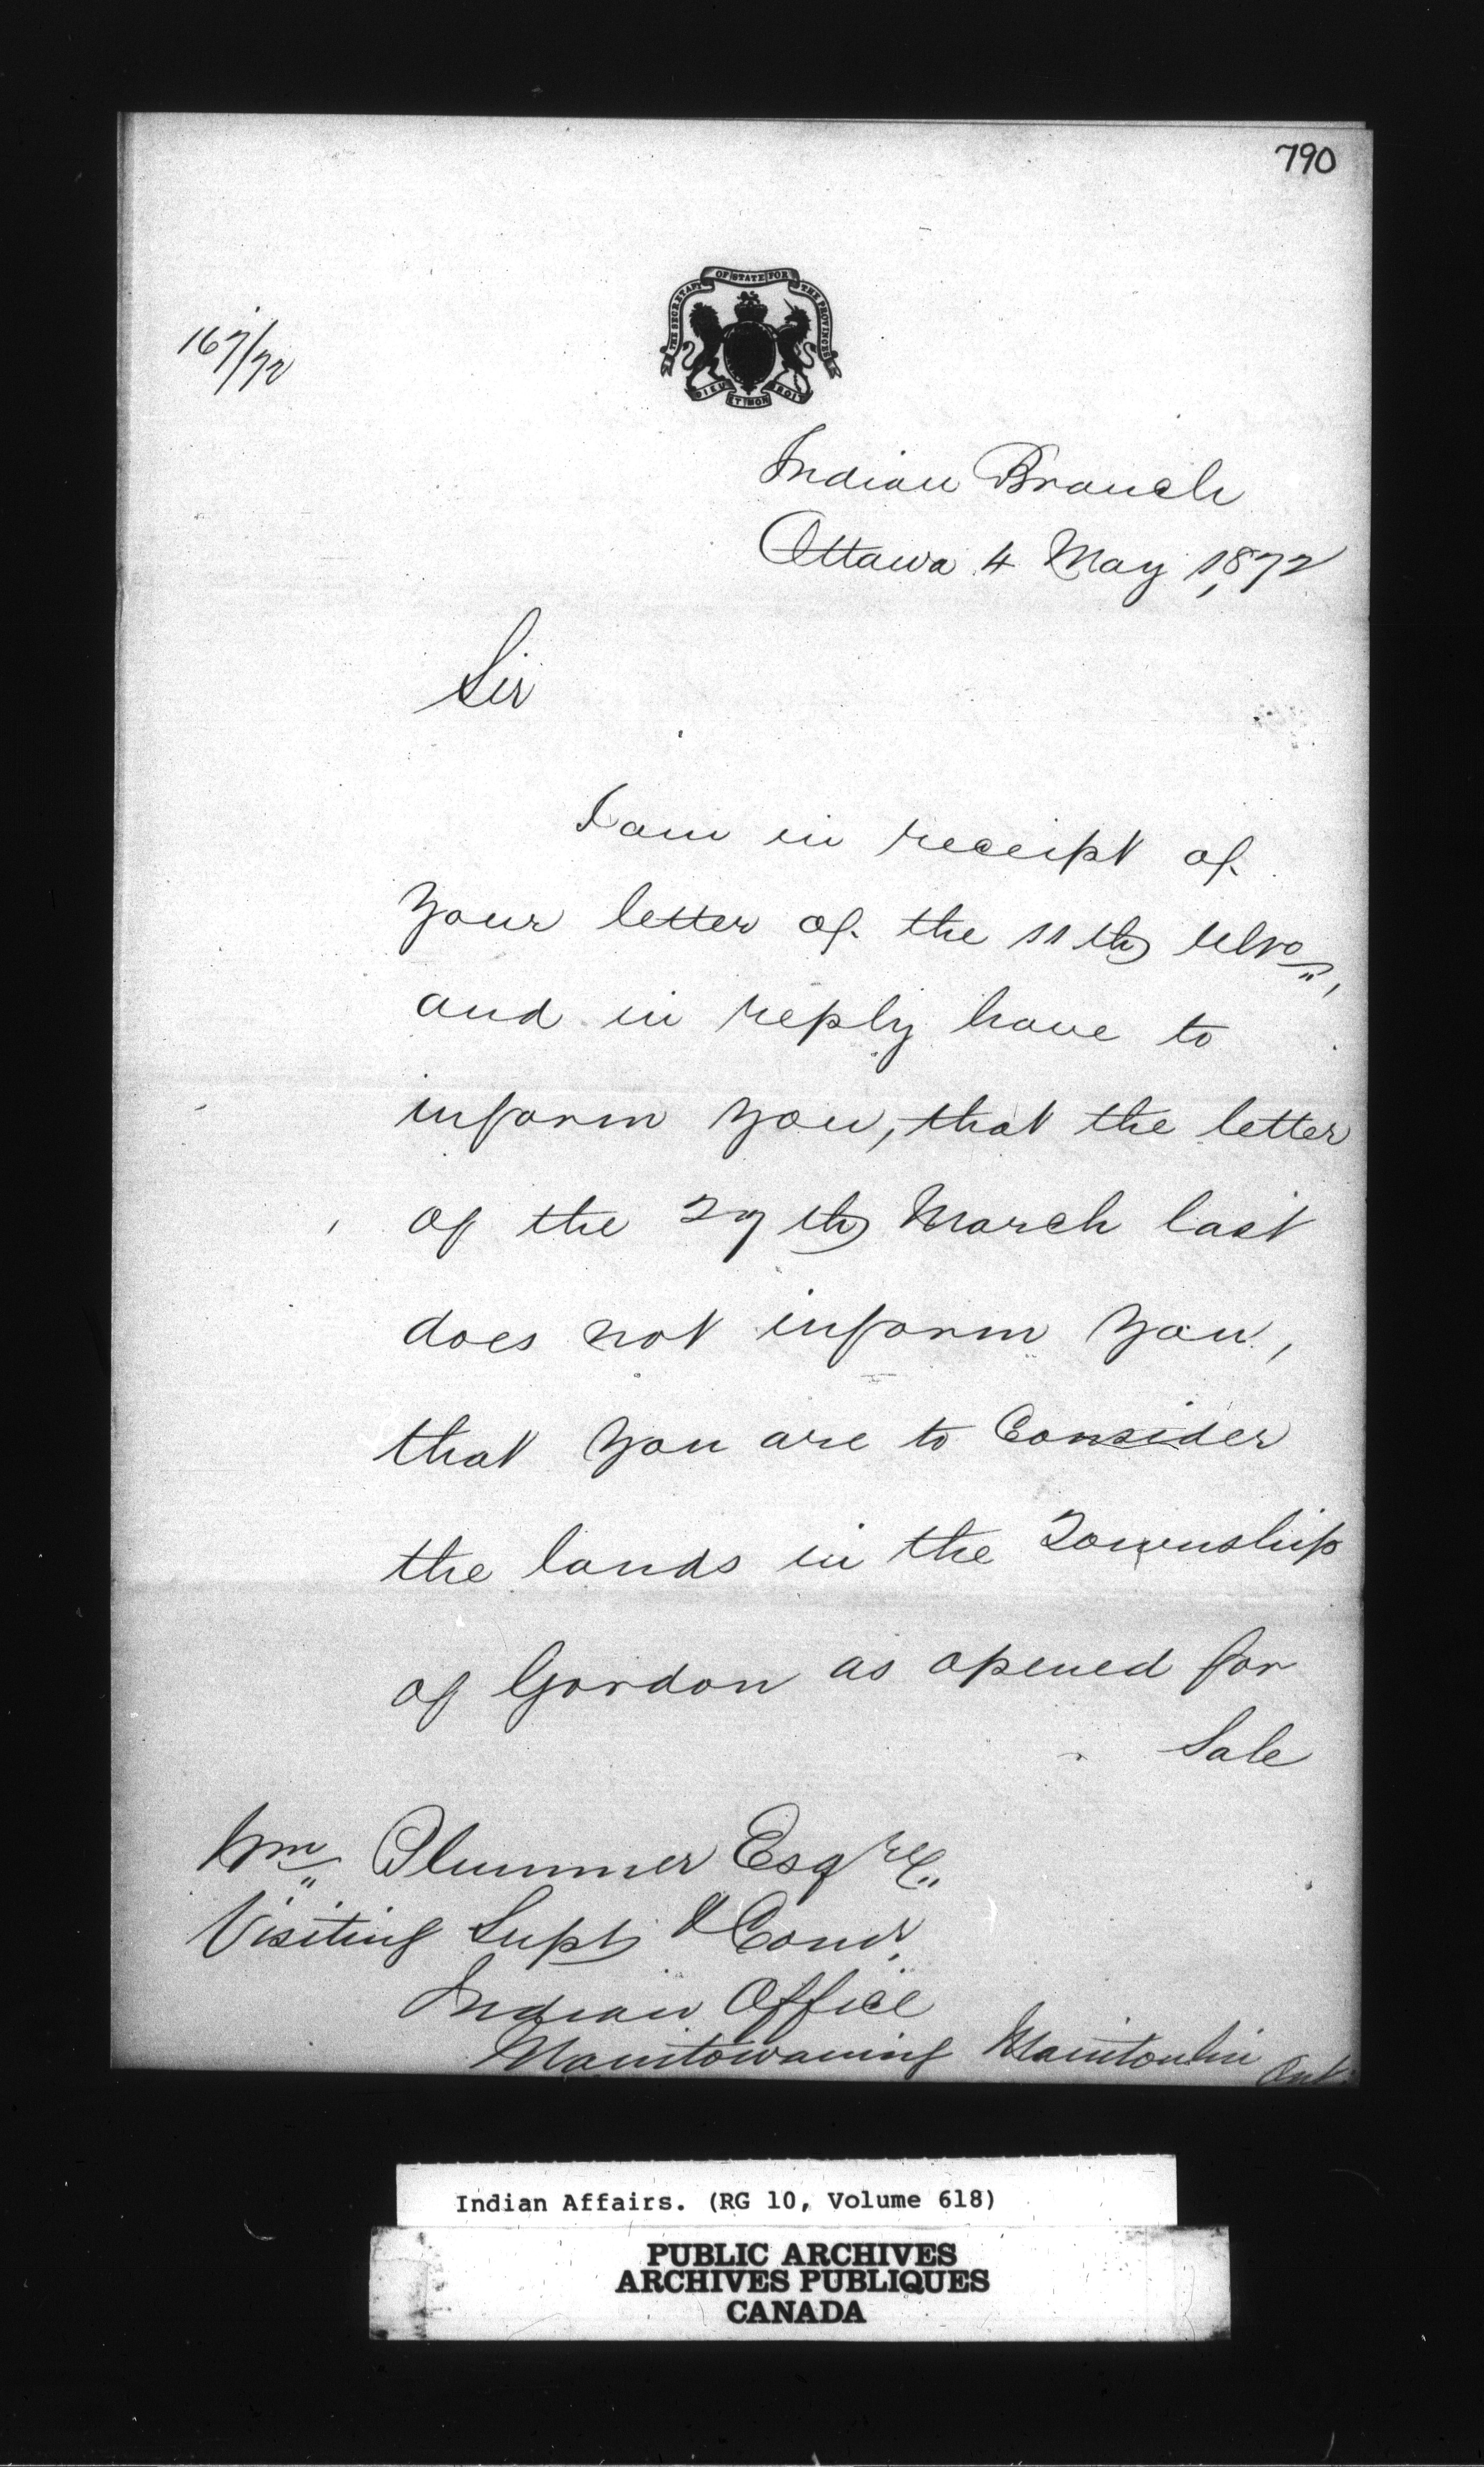 790
THE SECRETARY OF STATE FOR THE PROVINCES
DIEU ET MON DROIT
167/72
Indian Branch
Ottawa 4 May 1872
Sir
I am in receipt of
your letter of the 11th ulto,
and in reply have to
inform you, that the letter
of the 27th March last
does not inform you,
that you are to Consider
the lands in the Township
of Gordon as opened for
Sale
Wm Plummer Esqre
Visiting Supt & Comr.
Indian Office
Manitowaning Manitoulin Ont.
Indian Affairs. (RG 10, Volume 618)
PUBLIC ARCHIVES
ARCHIVES PUBLIQUES
CANADA